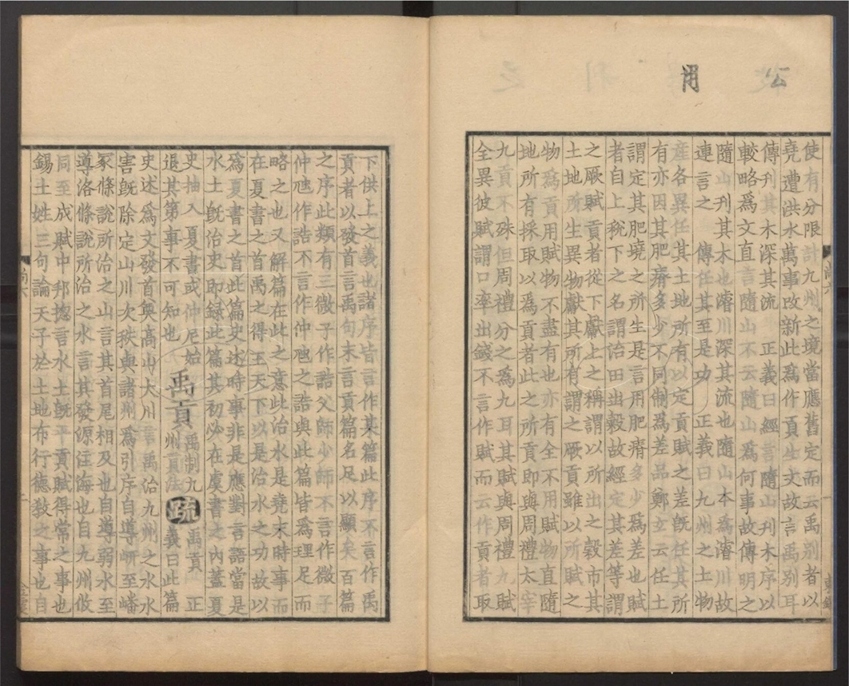 公用
使有分限計九州之境當應舊定而云禹別者以
堯遭洪水萬事改新此為作貢生文故言禹別耳
傳刊其木深其流 正義曰經言隨山刊木序以
較略為文直言隨山不云隨山為何事故傳明之
隨山刊其木也濬川深其流也隨山本為濬川故
連言之 傳任其至是功 正義曰九州之土物
產各異任其土地所有以定貢賦之差既任其所
有亦因其肥瘠多少不同制為差品鄭玄云任土
謂定其肥墝之所生是言用肥瘠多少為差也賦
者自上稅下之名謂治田出穀故經定其差等謂
之厥賦貢者從下獻上之稱謂以所出之穀市其
土地所生異物獻其所有謂之厥貢雖以所賦之
物為貢用賦物不盡有也亦有全不用賦物直隨
地所有採取以為貢者此之所貢即與周禮太宰
九貢不殊但周禮分之為九耳其賦與周禮九賦
全異彼賦謂口率出錢不言作賦而云作貢者取
下供上之義也諸序皆言作某篇此序不言作禹
貢者以發首言禹句末言貢篇名足以顯矣百篇
之序此類有三微子作誥父師少師不言作微子
仲虺作誥不言作仲虺之誥與此篇皆為理足而
略之也又解篇在此之意此治水是堯末時事而
在夏書之首禹之得王天下以是治水之功故以
為夏書之首此篇史述時事非是應對言語當是
水土既治史即錄此篇其初必在虞書之內蓋夏
史抽入夏書或仲尼始
退其第事不可知也
禹貢 禹制九
州貢法 疏 禹貢 正
義曰此篇
史述為文發首奠高山大川言禹治九州之水水
害既除定山川次秩與諸州為引序自導岍至嶓
冢條說所治之山言其首尾相及也自導弱水至
導洛條說所治之水言其發源注海也自九州攸
同至成賦中邦總言水土既平貢賦得常之事也
錫土姓三句論天子於土地布行德教之事也自